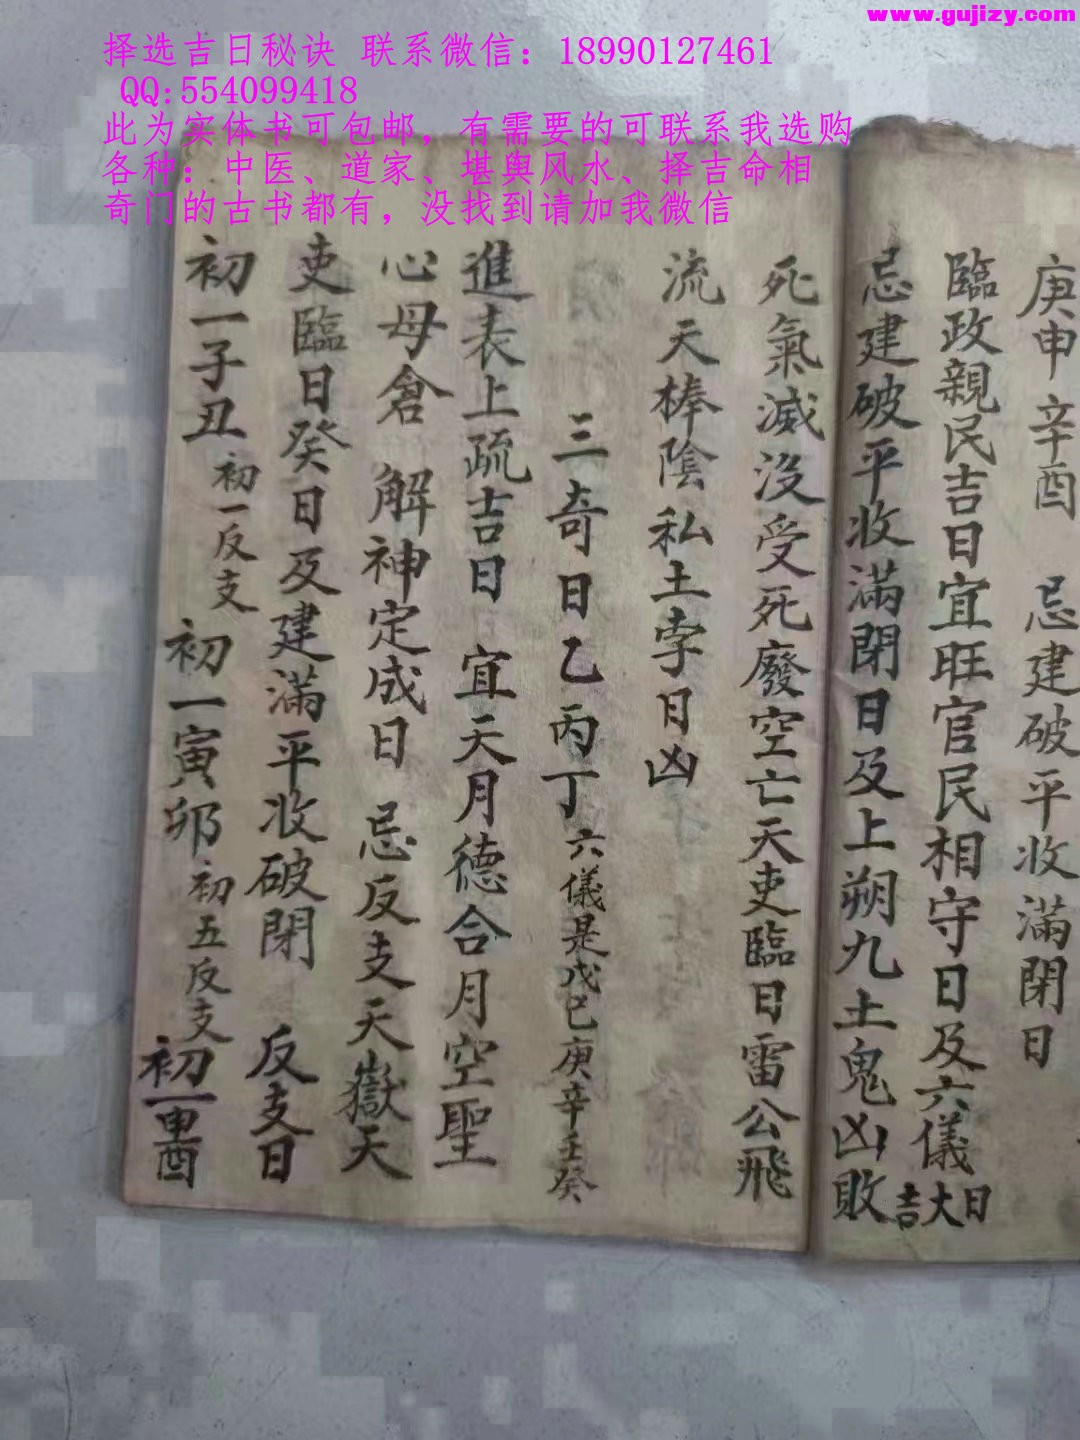 www.gujizy.com
择选吉日秘诀 联系微信：18990127461
QQ:554099418
此为实体书可包邮，有需要的可联系我选购
各种：中医、道家、堪舆风水、择吉命相
奇门的古书都有，没找到请加我微信
庚申 辛酉 忌建破平收滿閉日
臨政親民吉日宜旺官民相守日及六儀日大吉
忌建破平收滿閉日及上朔九土鬼凶敗
死氣滅沒受死廢空亡天吏臨日雷公飛
流天棒陰私土孛日凶
三奇日乙丙丁六儀是戊己庚辛壬癸
進表上疏吉日 宜天月德合月空聖
心母倉 解神定成日 忌反支天嶽天
吏臨日癸日及建滿平收破閉 反支日
初一子丑初一反支 初一寅卯初五反支 初一申酉